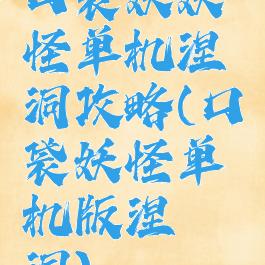 口袋妖妖
怪单机涅
洞攻略(口
袋妖怪单
机版涅
洞)